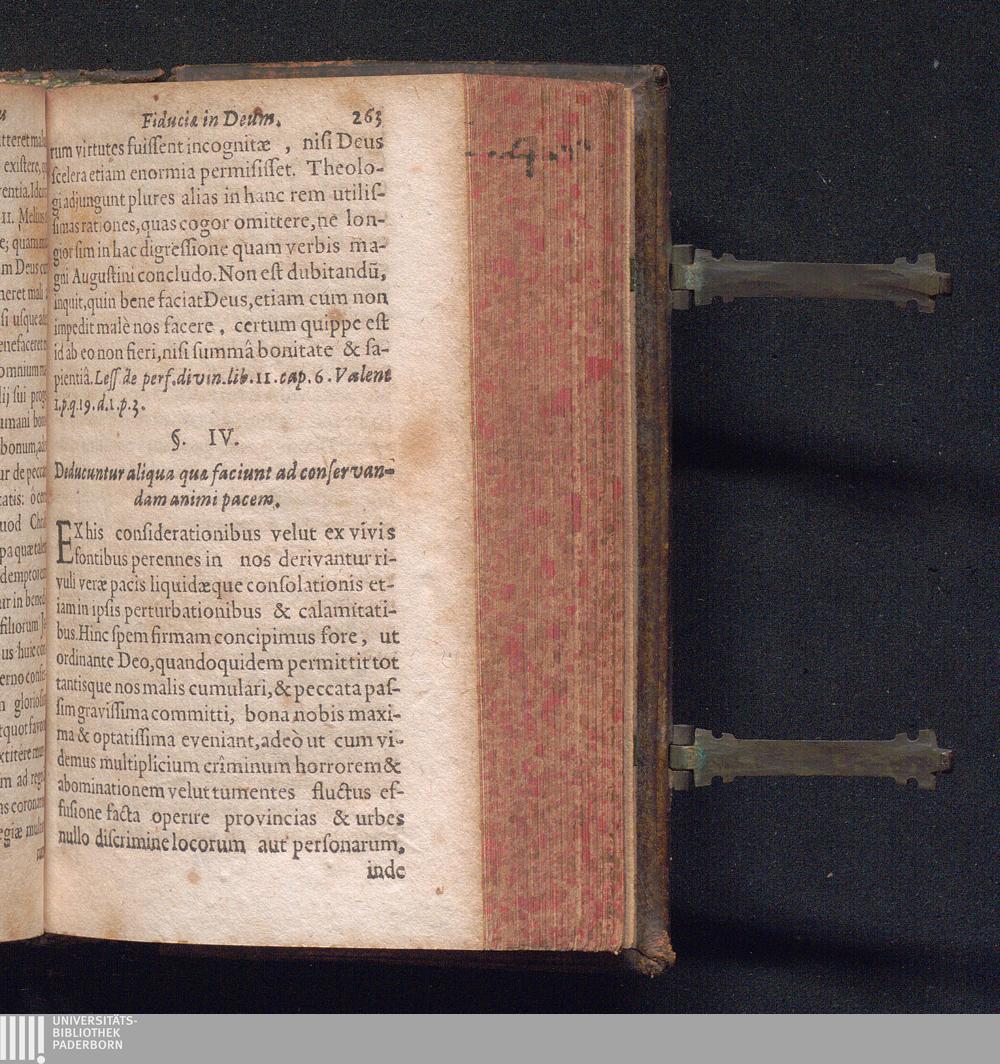 Fiducia in Deum. 263
rum virtutes fuiſſent incognitæ , niſi Deus
ſcelera etiam enormia permiſiſſet. Theolo-
gi adjungunt plures alias in hanc rem utiliſ-
ſimas rationes, quas cogor omittere, ne lon-
gior ſim in hac digreſſione quam verbis ma-
gni Auguſtini concludo. Non eſt dubitandū,
inquit, quin bene faciat Deus, etiam cum non
impedit malè nos facere , certum quippe eſt
id ab eo non fieri, niſi ſummâ bonitate & ſa-
pientiâ. Leſſ de perf. divin. lib. 11. cap. 6. Valent
1. p. q. 19. d. 1. p. 3.
§. IV.
Deducuntur aliqua quæ faciunt ad conſervan-
dam animi pacem.
EX his conſiderationibus velut ex vivis
fontibus perennes in nos derivantur ri-
vuli veræ pacis liquidæque conſolationis et-
iam in ipſis perturbationibus & calamitati-
bus. Hinc ſpem firmam concipimus fore , ut
ordinante Deo, quandoquidem permittit tot
tantisque nos malis cumulari, & peccata paſ-
ſim graviſſima committi, bona nobis maxi-
ma & optatiſſima eveniant, adeò ut cum vi-
demus multiplicium criminum horrorem &
abominationem velut tumentes fluctus ef-
fuſione facta operire provincias & urbes
nullo diſcrimine locorum aut perſonarum,
inde
UNIVERSITÄTS-
BIBLIOTHEK
PADERBORN